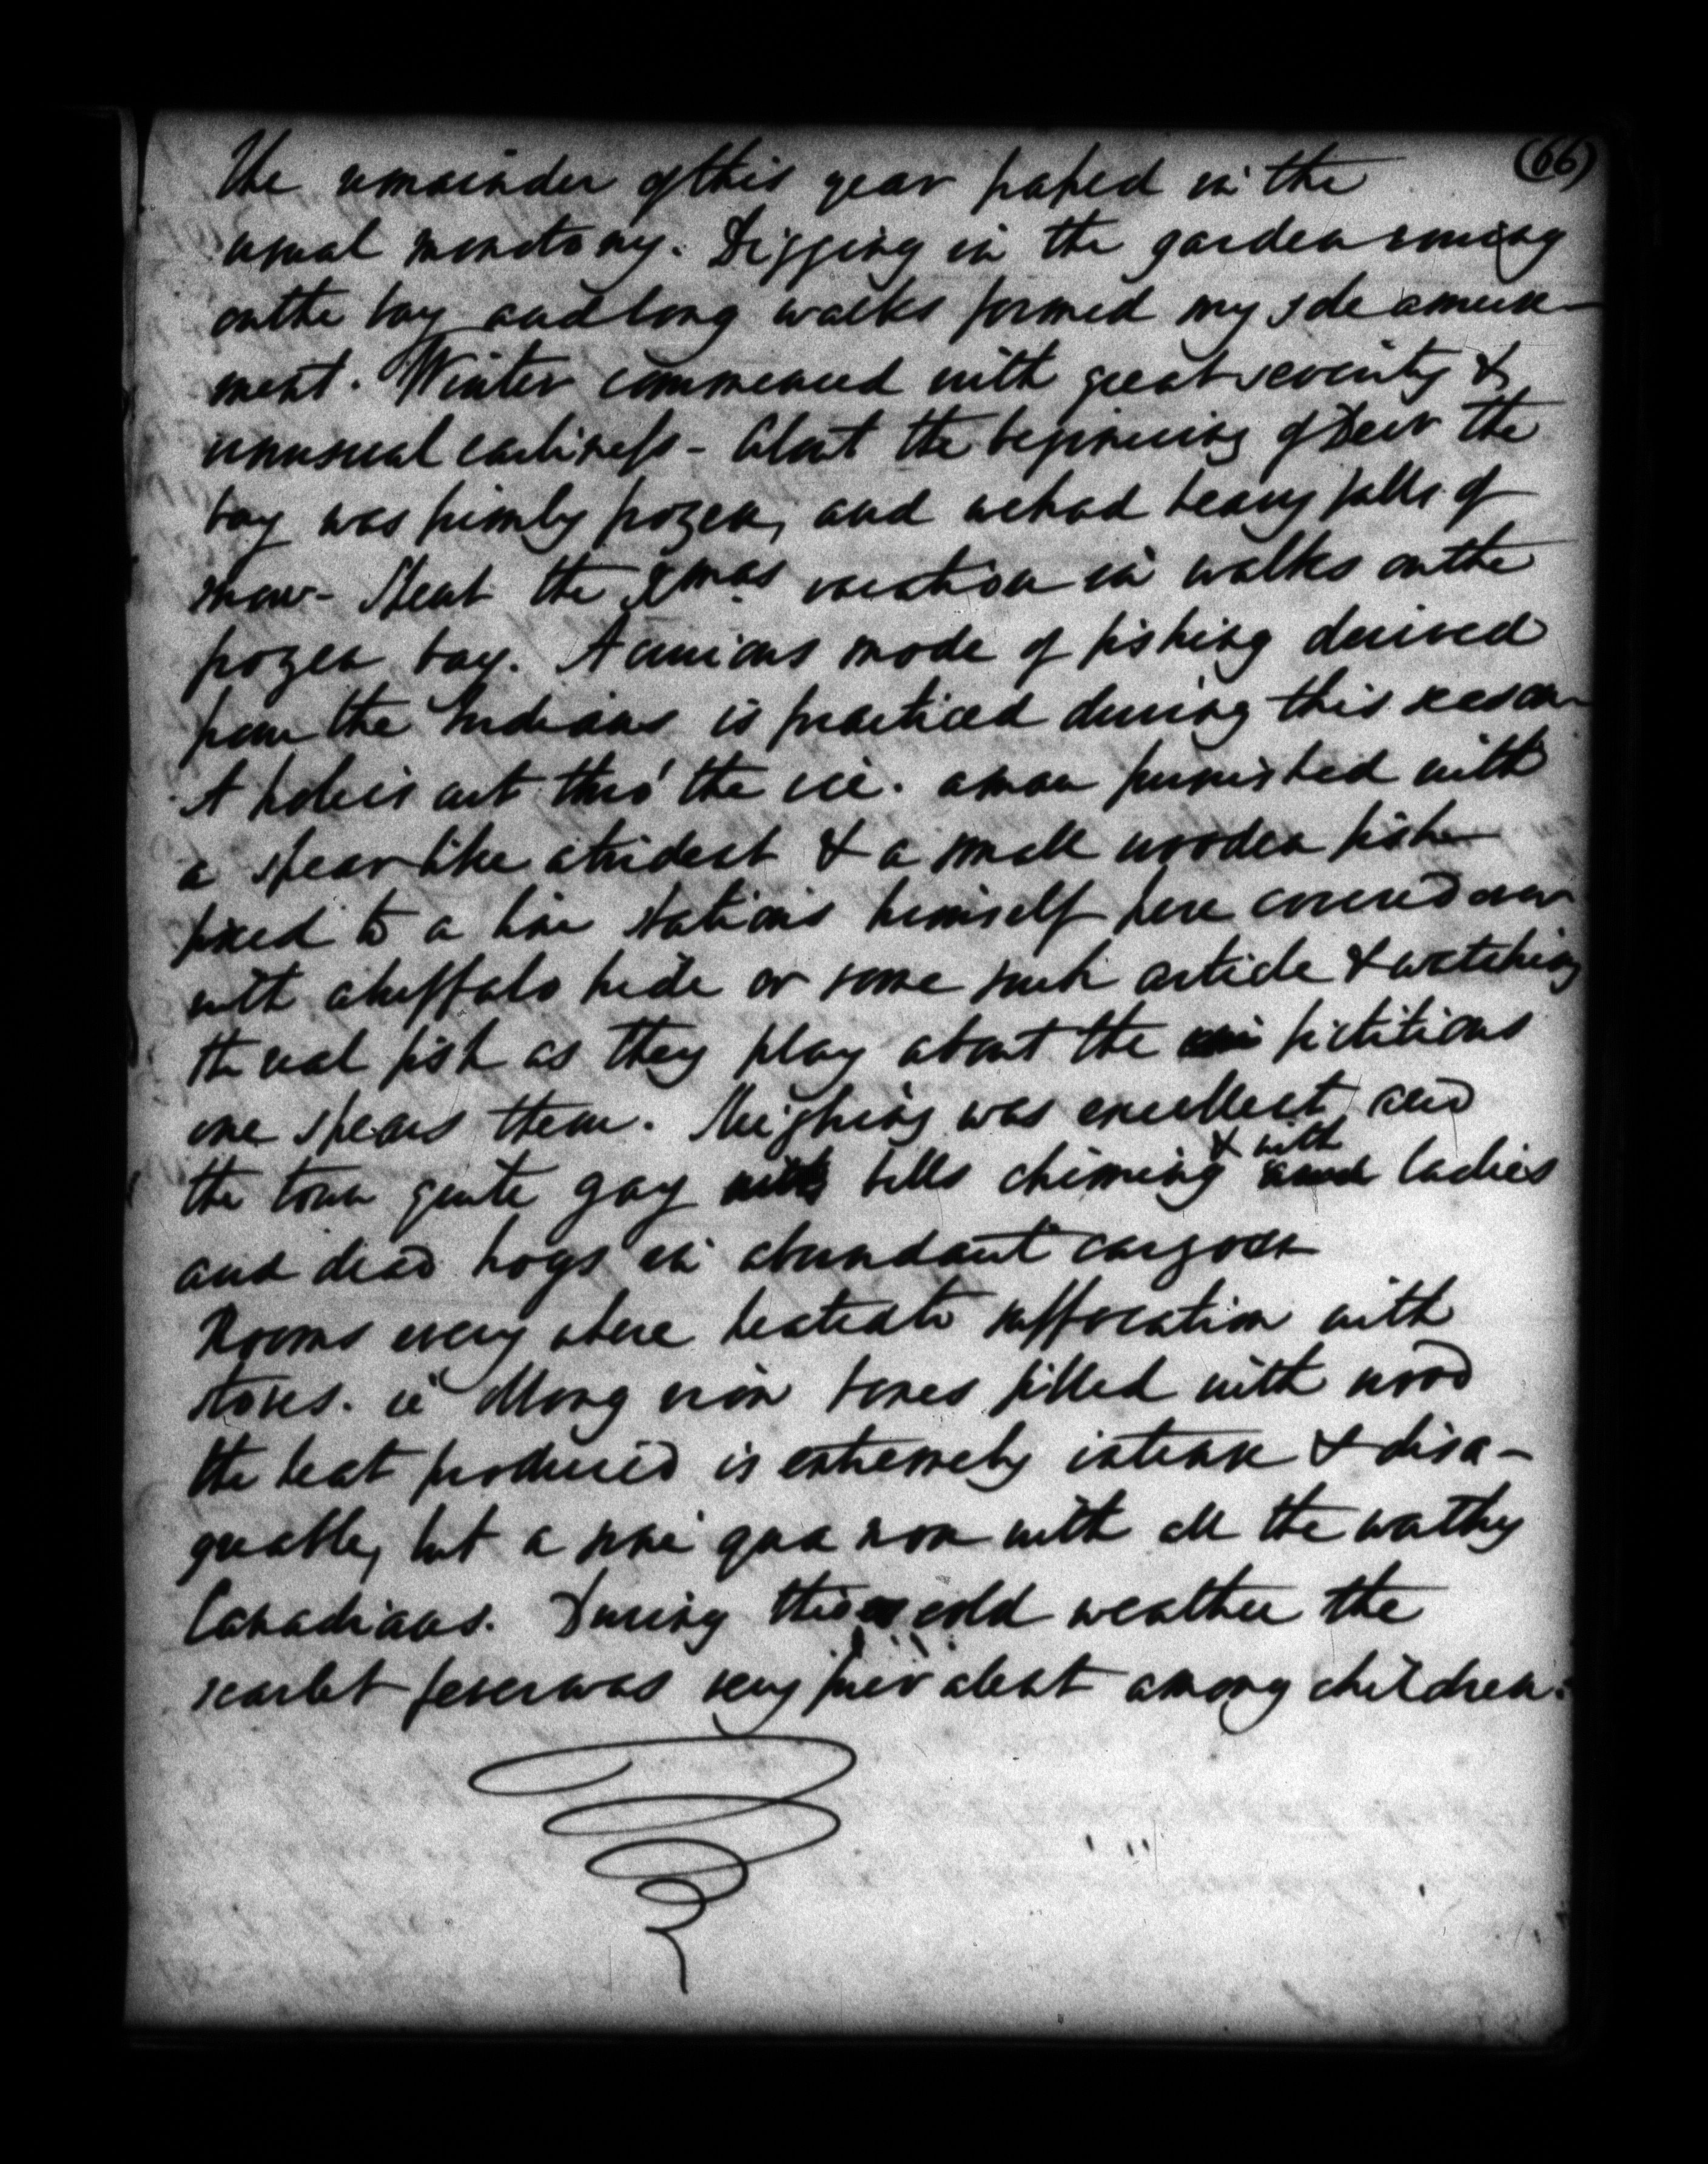 (66)
The remainder of this year passed in the
usual monotony. Digging in the garden rowing
on the bay and long walks formed my sole amuse-
ment. Winter commenced with great severity &
unusual earliness - About the beginning of Decr the
bay was firmly frozen, and we had heavy falls of
snow - Spent the Xmas vacation in walks on the
frozen bay. A curious mode of fishing derived
from the Indians is practiced during this season
A hole is cut thro' the ice. a man furnished with
a spear like a trident & a small wooden fish
fixed to a line stations himself here covered over
with a buffalo hide or some such article & watching
the real fish as they play about the fictitious
one spears them. Sleighing was excellent, and
the town quite gay with bells chiming & with ladies
and dead hogs in abundant cargoes
Rooms every where heated to suffocation with
stoves. ie oblong iron boxes filled with wood
the heat produced is extremely intense & disa-
greable, but a sine qua non with all the wathy
Canadians. During this cold weather the
scarlet fever was very prevalent among children.